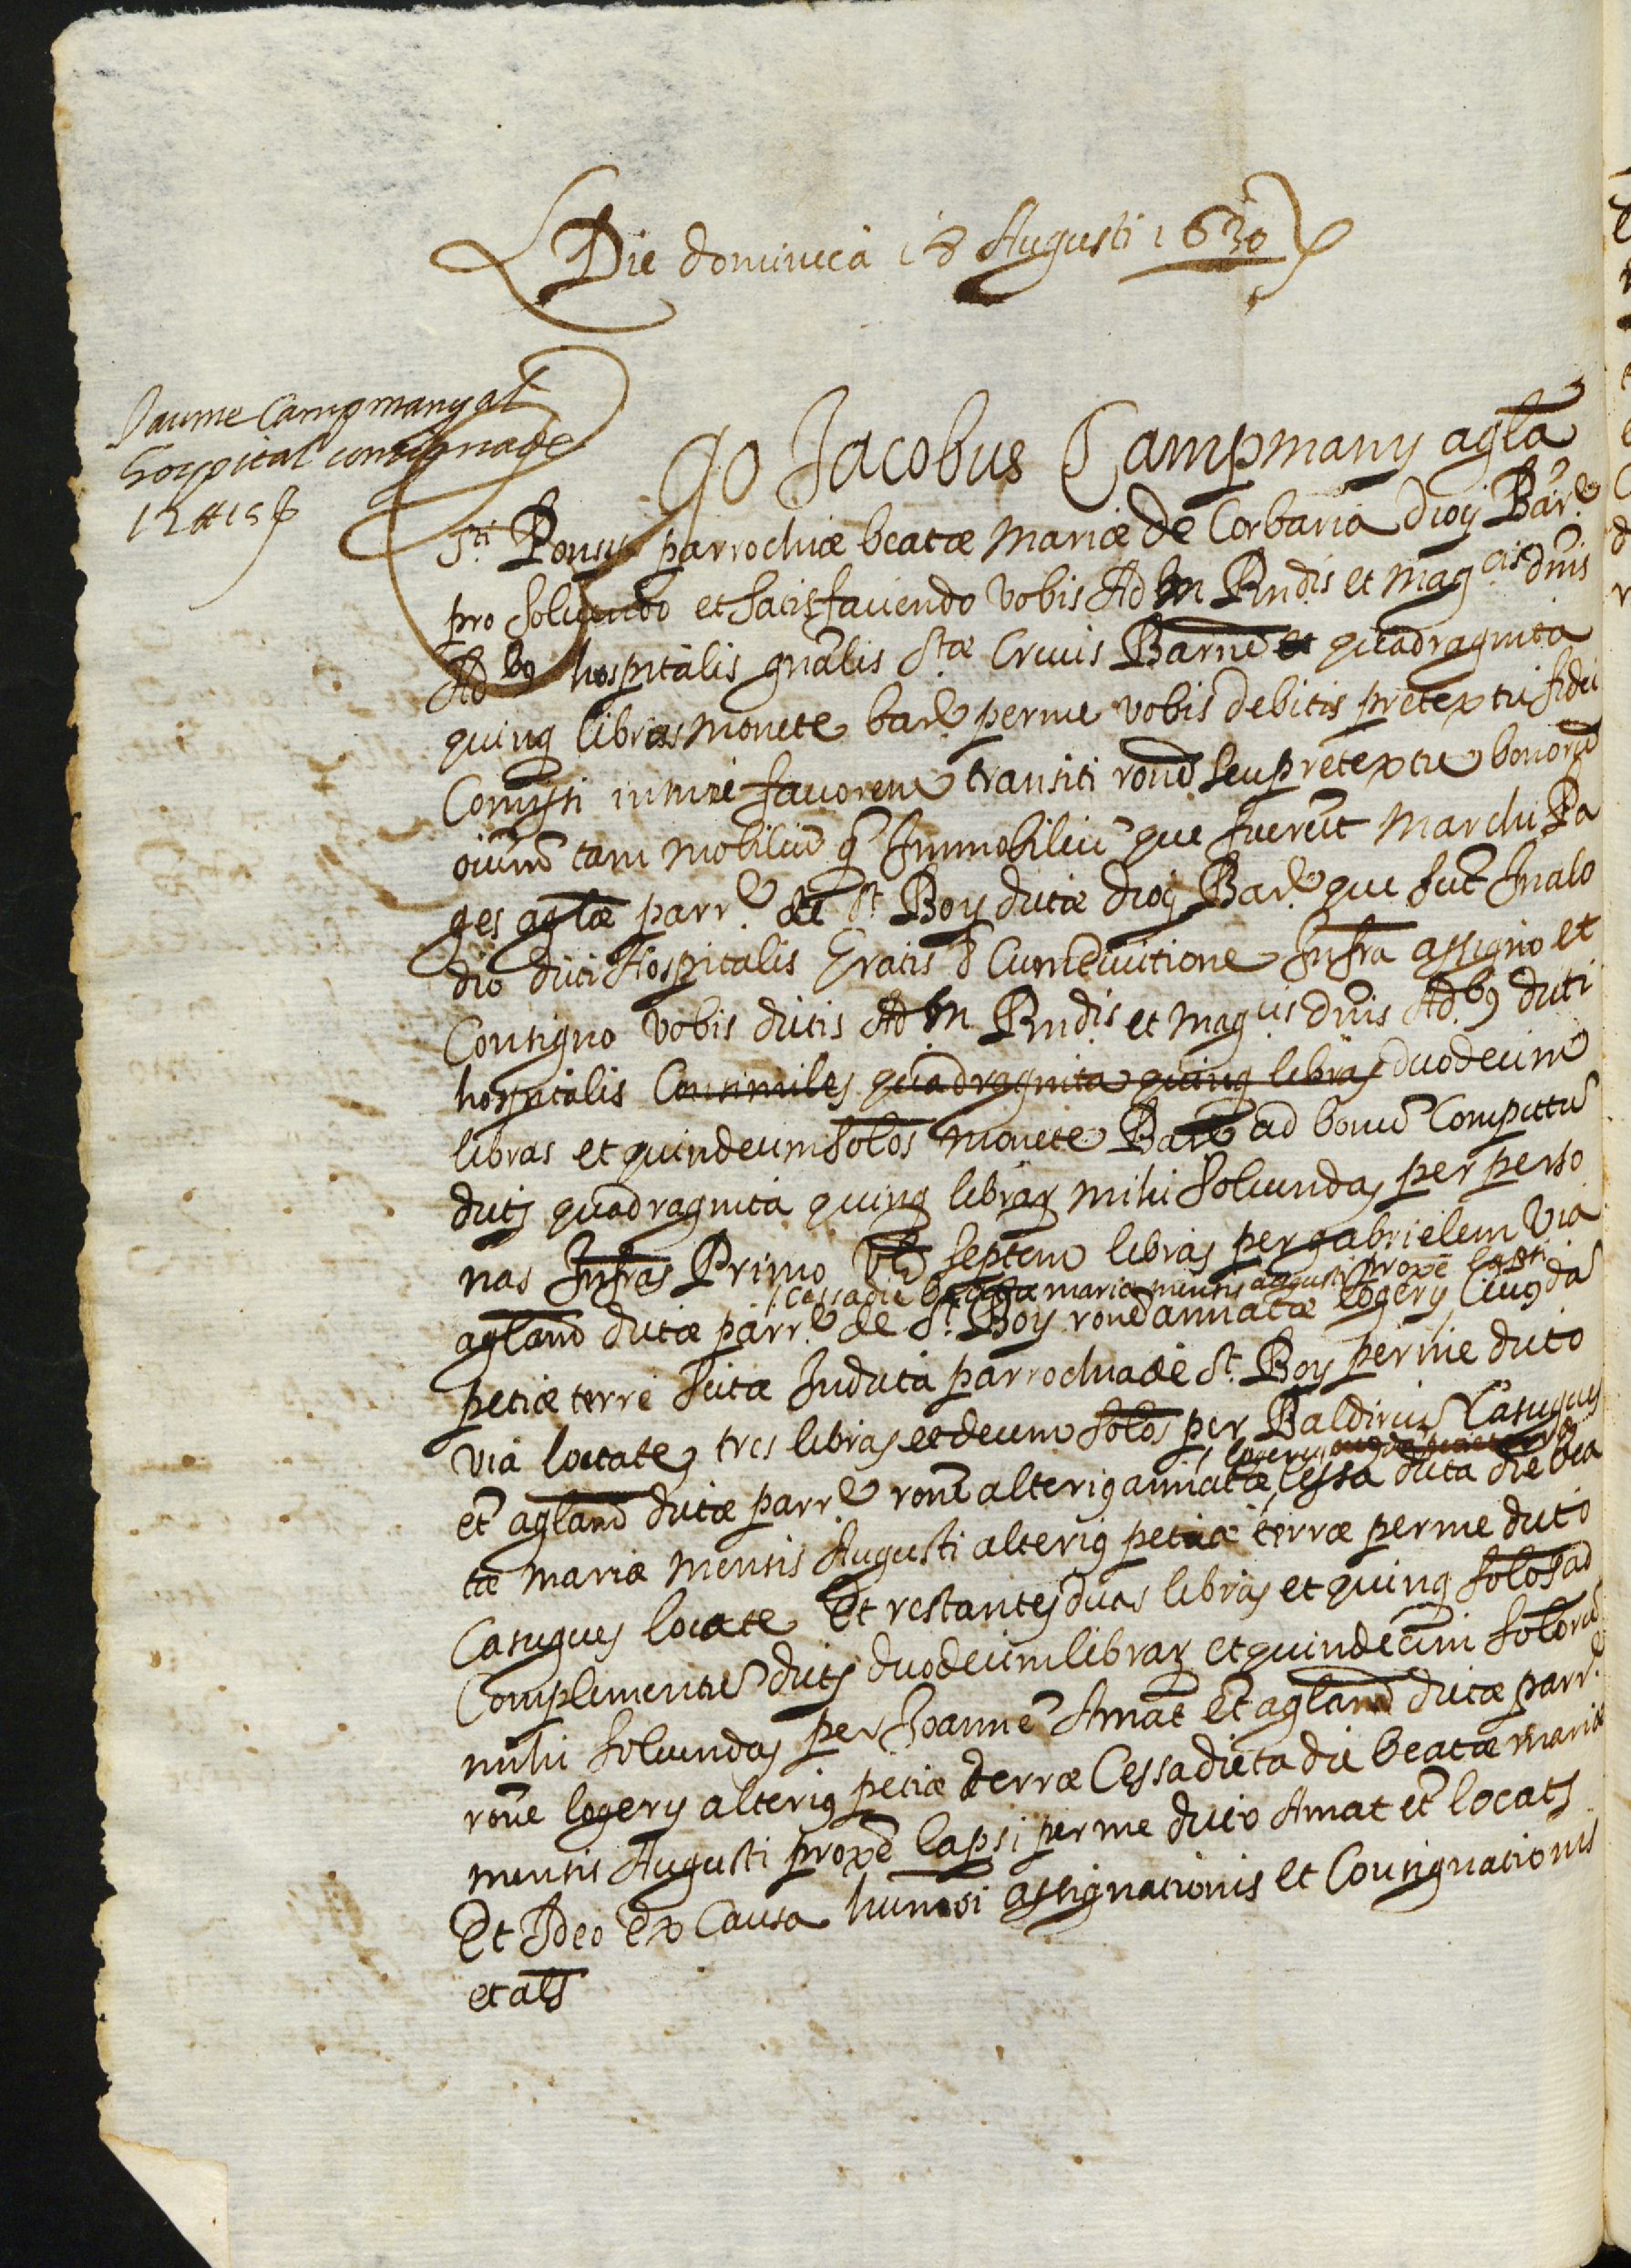 Die dominica 18 Augusti 1630
Jaume Campmany al
hospital consignade
12 ₶ 15 ſ
Ego Jacobus Campmany agla
Sti. Ponsij parrochiæ beatæ Mariæ de Corbaria diois Bar.e
pro solvendo et satisfaciendo vobis Ad m Rndis et mag cis dnis
Ad bq hospitalis gnalis Stæ Crucis Barne quadraginta
quinq libras monete bare per me vobis debitis pretextu fidei
Comissi in mei favorem transiti rone seu pretextu bonorū
oium tam mobiliū q Immobiliū que fuerūt Marchi Pa
ges aglæ parr.e de St. Boy dictæ diois Bare que sūt In alo
dio dicti Hospitalis Gratis & Cum evictione Infra assigno et
Consigno vobis dictis Ad m Rndis et mag cis dnis Ad. bq dicti
hospitalis Consimiles quadraginta quinq libras duodecim
libras et quindecim solos monete Bare ad bonū Computū
dictis quadraginta quinq librar mihi solvendas per perso
nas Infras Primo septem libras per gabrielem Via
cessa die beatæ mariæ mensis augusti proxe lapsi
agland dictæ parr.e de St. Boy rone annatæ logery Ciuqdā
petiæ terre sitæ In dicta parrochia de St. Boy per me dicto
Via locate, tres libras et decem solos per Baldiriū Casugues
logery
et agland dictæ parr.e rone alteriq annatæ cessa dicta die bea
tæ Mariæ mensis Augusti alteriq petiæ terræ per me dicto
Casugues locate Et restantes duas libras et quinq solos ad
Complimentū dictis duodecim librar et quindecim solorū
mihi solvendas per Joanne Amat et agland dictæ parr.e
rone logery alteriq petiæ terræ Cessa dicta die beatæ mariæ
mensis Augusti proxe lapsi per me dicto Amat et locats
Et Ideo Ex Causa humoi assignationis et Consignationis
et als